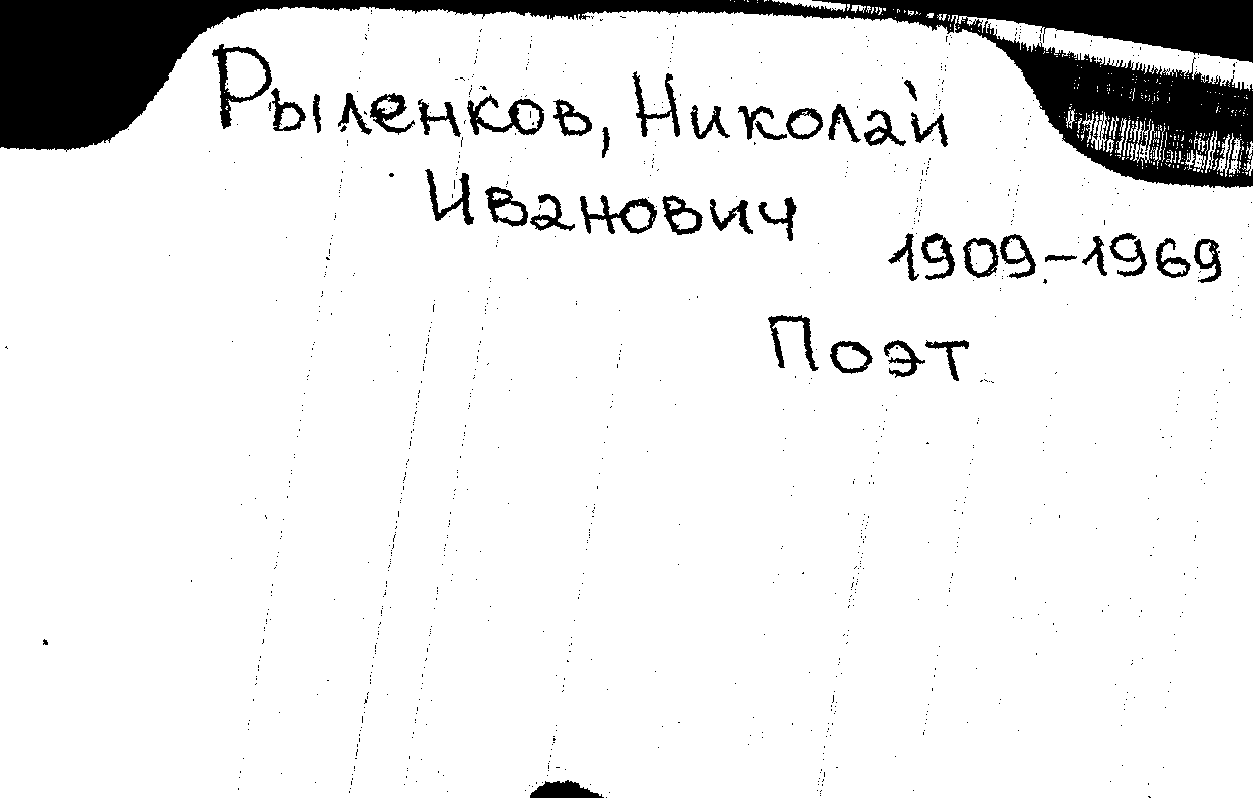 Рыленков, Николай
Иванович
1909-1969
Поэт